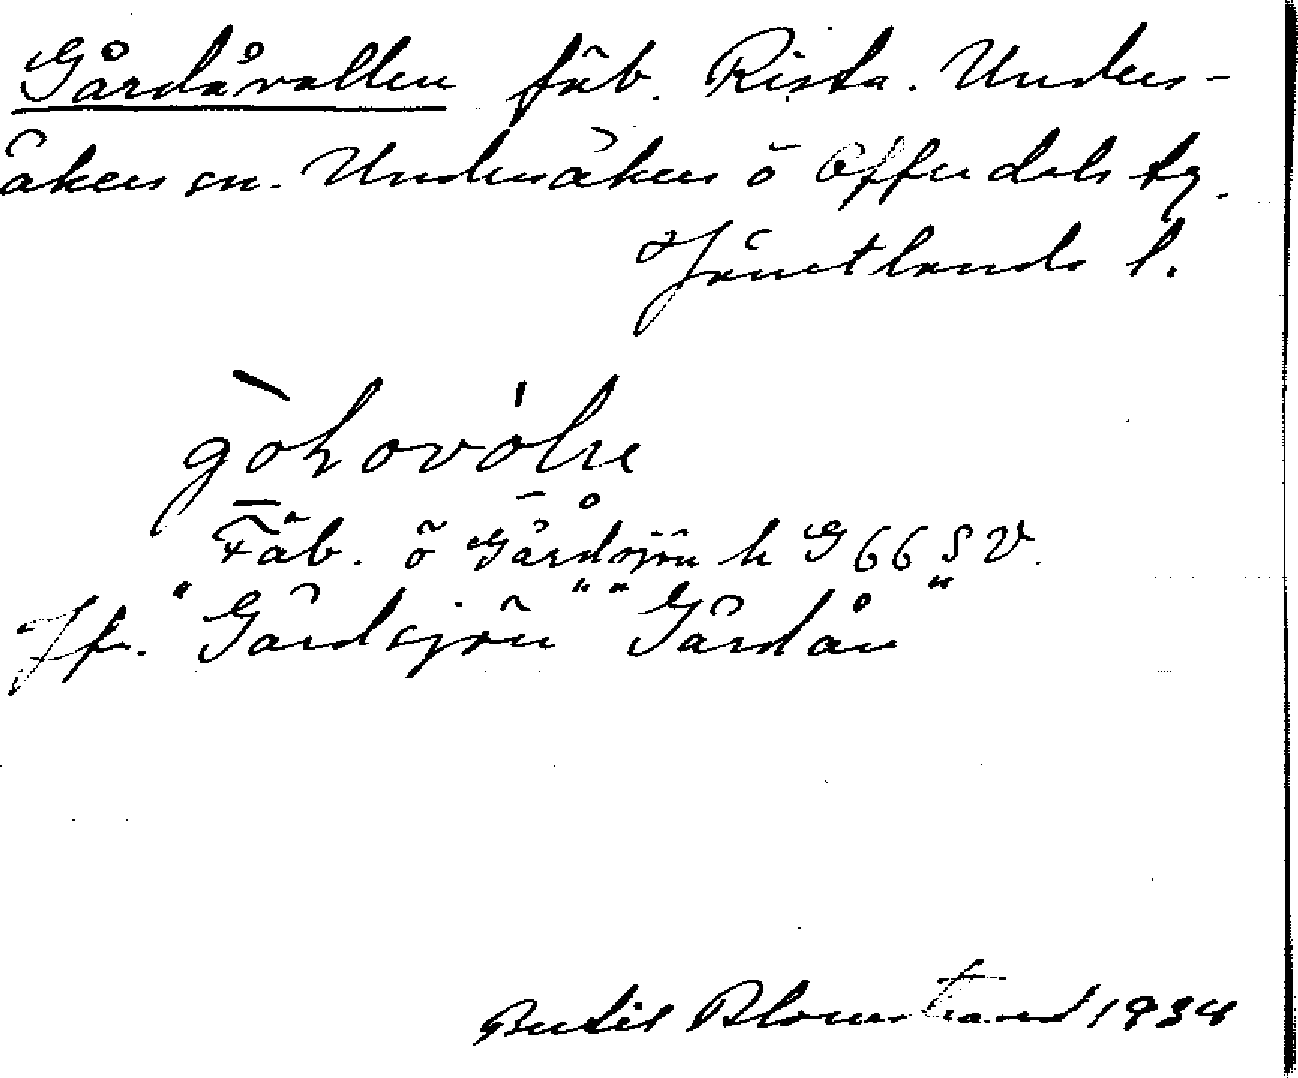 Gårdåvallen fäb. Rista. Unders-
åkers sn. Undersåkers o Offerdals tg.
Jämtlands l.
Fäb. o Gårdsjön k G 66 SV.
Jfr. "Gårdsjön" "Gårdån"
Bertil Blomstrand 1934